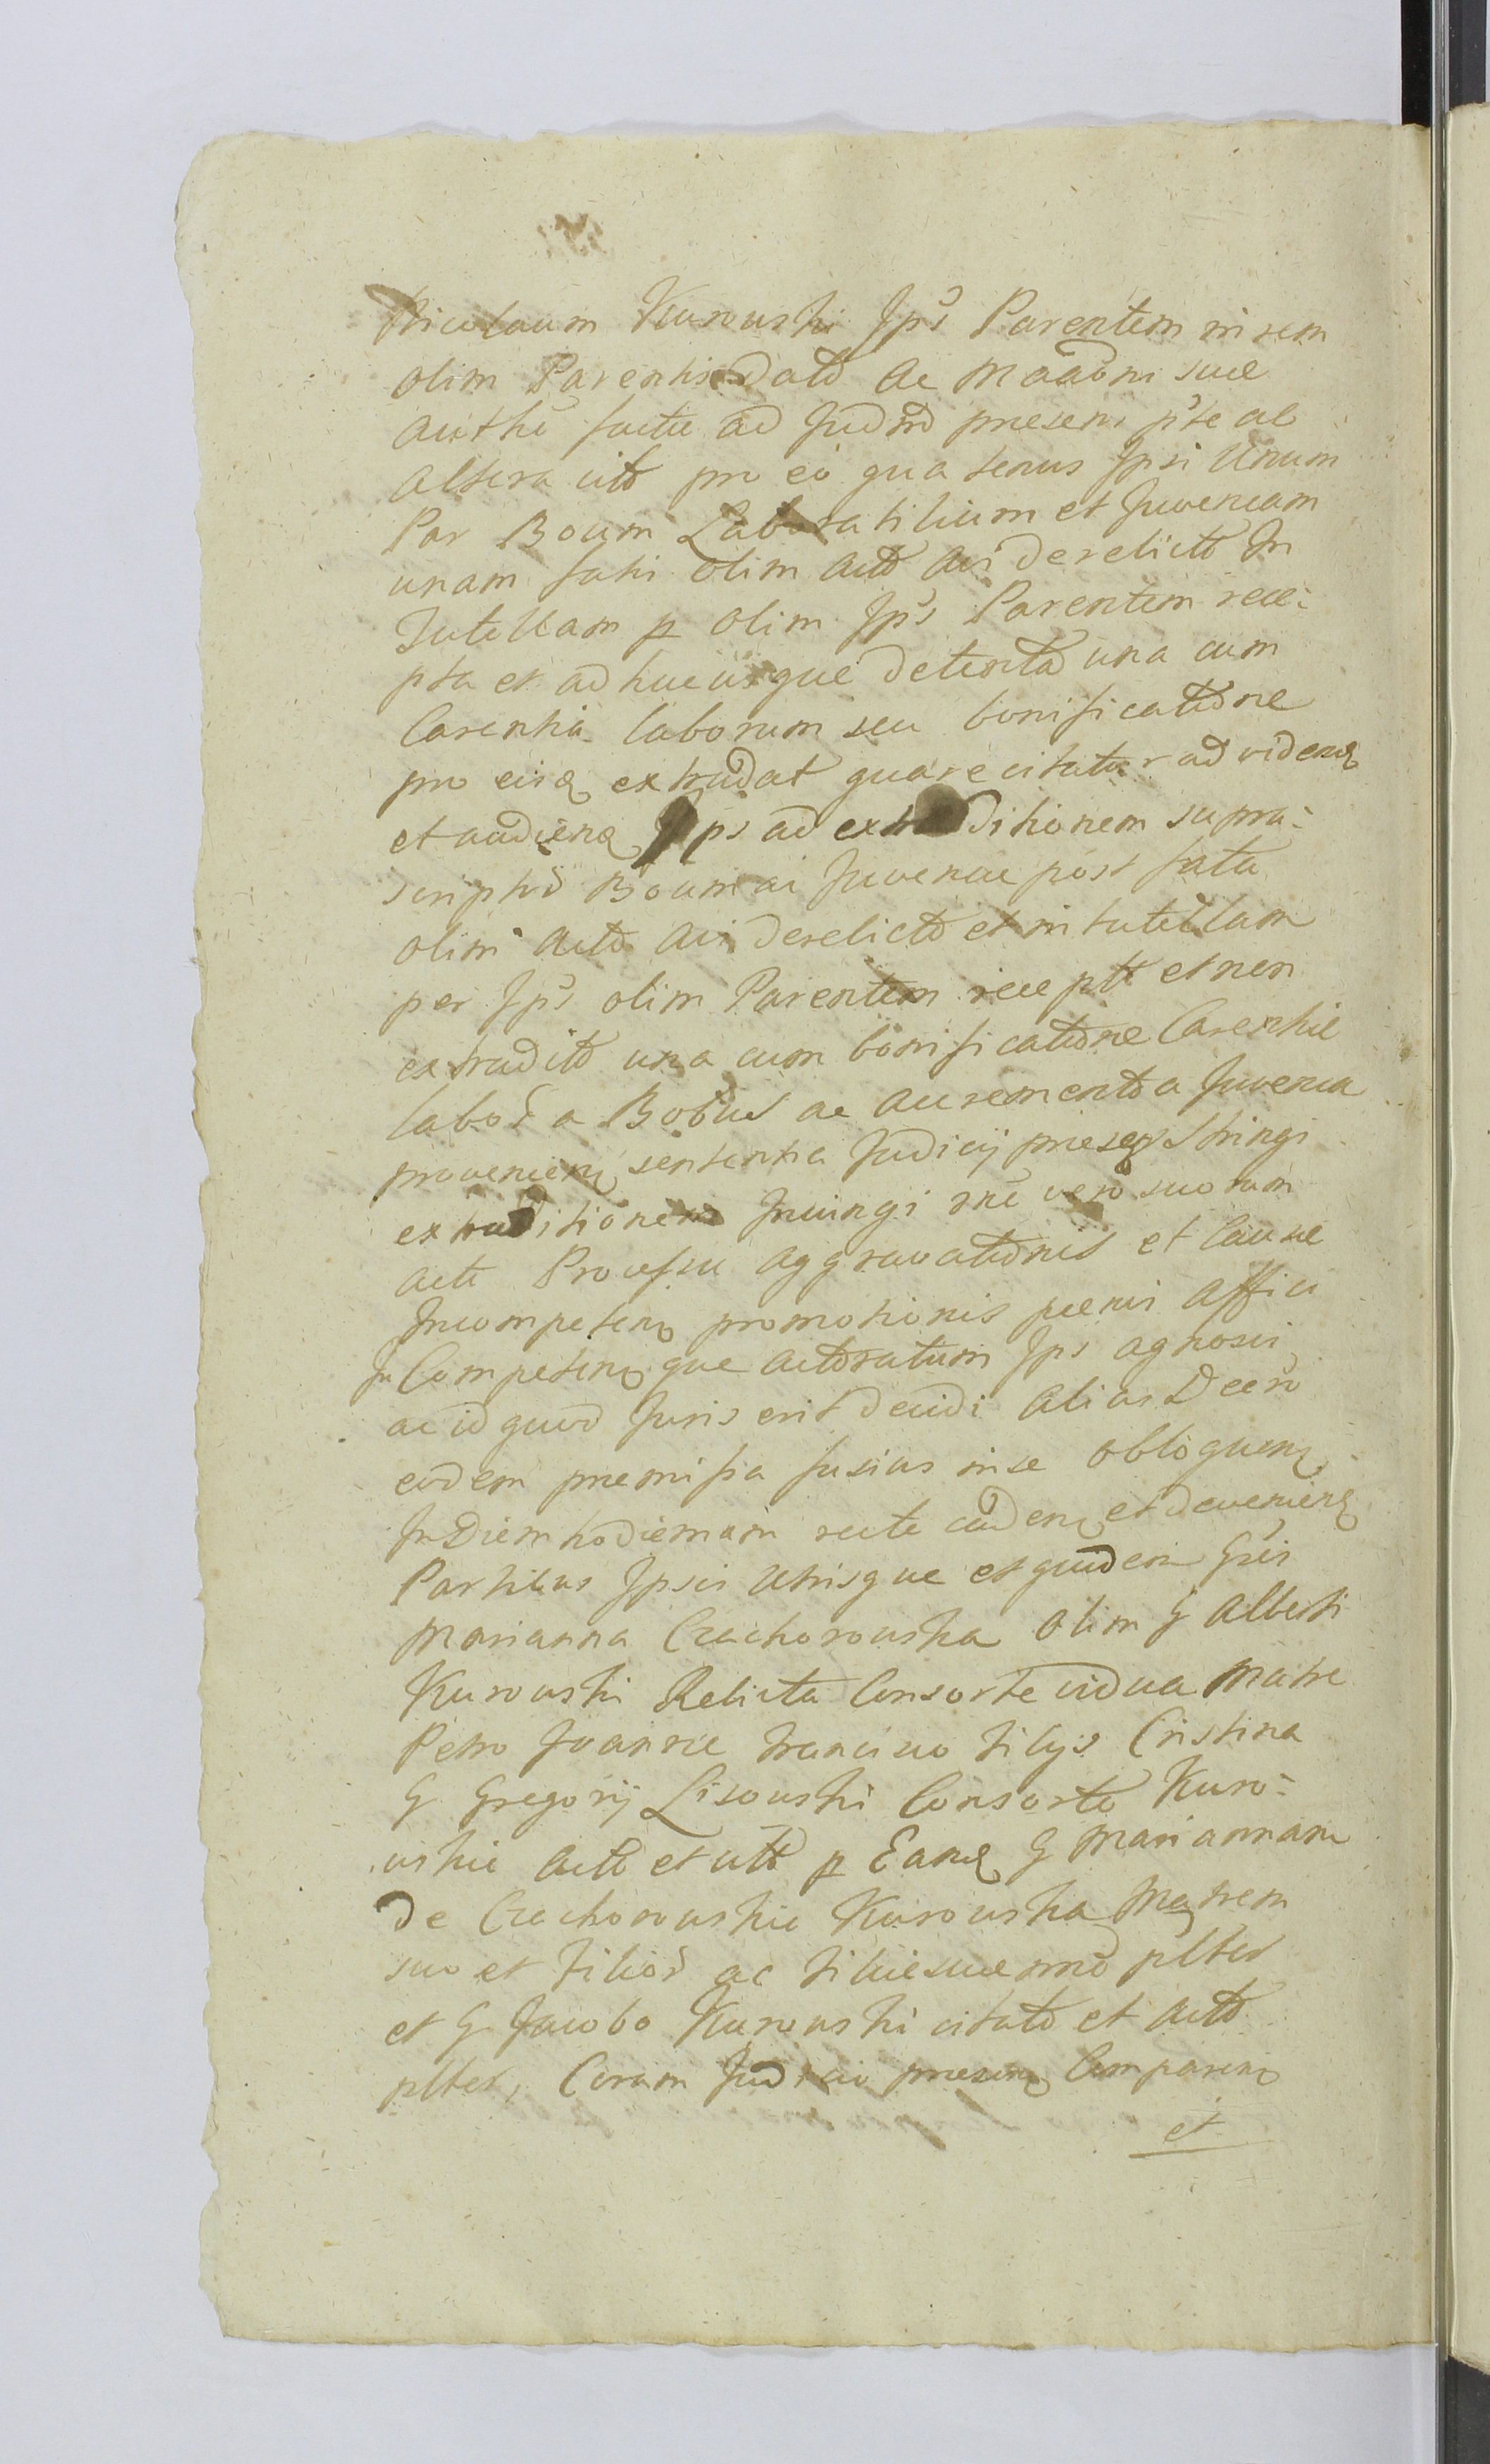 Nicolaum Kurowski Ips Parentem in rem
olim Parentis Dato ac Maaoni suae
authe factae ad Judm praesens pte ab
altera cito pro eo qua tenus Ipsi Unum
Par Boum Laboratilium et Juvencam
unam fatis olim acto avi derelicto In
Tutellam p olim Ips Parentem rece:
pta et adhucusque detenta una cum
Carentia laborum seu bonificatione
pro eisq extradat quare citatur ad videnq
et audienq Ips ad extraditionem supra:
scripto Boum ac Juvencae post fata
olim acto avi derelicto et in tutellam
per Ips olim Parentem recepto et non
extradito una cum bonificatione Carentiae
labor a Bobus ac accremento a Juvenca
provenienq sententia Judicij praesenq Stringi
extraditionem Iniungi rne vero suorum
acti Processu aggravationis et Causae
Incompetenq promotionis paenis affici
In Competenq que actoratum Ips agnosci
ac id quod Juris erit decidi alias Decro
eodem praemissa fusius in se obloquenq
In Diem hodiernam recte cadenq et devenienq
Partibus Ipsis Utrisque et quidem Gsis
Marianna Czachorowska olim G Alberti
Kurowski Relicta Consorte vidua Matre
Petro Joanne Francisco filijs Cristina
G Gregorij Lisowski Consorte Kuro:
wskie acto et utt p Eanq G Mariannam
De Czachorowskie Kurowska Matrem
suo et filior ac filiae suae nno plter
et G Jacobo Kurowski citato et acto
plter, Coram Judicio praesenq Comparenq
et